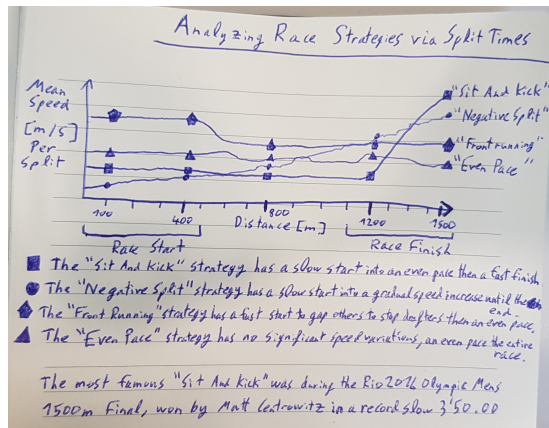 Analyzing Race Strategies via Split Times
Mean
Speed
[m/s]
Per
Split
"Sit And Kick"
"Negative Split"
"Front running"
"Even Pace"
100 400 800 1200 1500
Distance [m]
Race Start Race Finish
The "Sit And Kick" strategy has a slow start into an even pace then a fast finish
The "Negative Split" strategy has a slow start into a gradual speed increase until the end.
The "Front Running" strategy has a fast start to gap others to stop drafters then an even pace.
The "Even Pace" strategy has no significant speed variations, an even pace the entire
race.
The most famous "Sit And Kick" was during the Rio 2016 Olympic Mens
1500m Final, won by Matt Centrowitz in a record slow 3'50.00